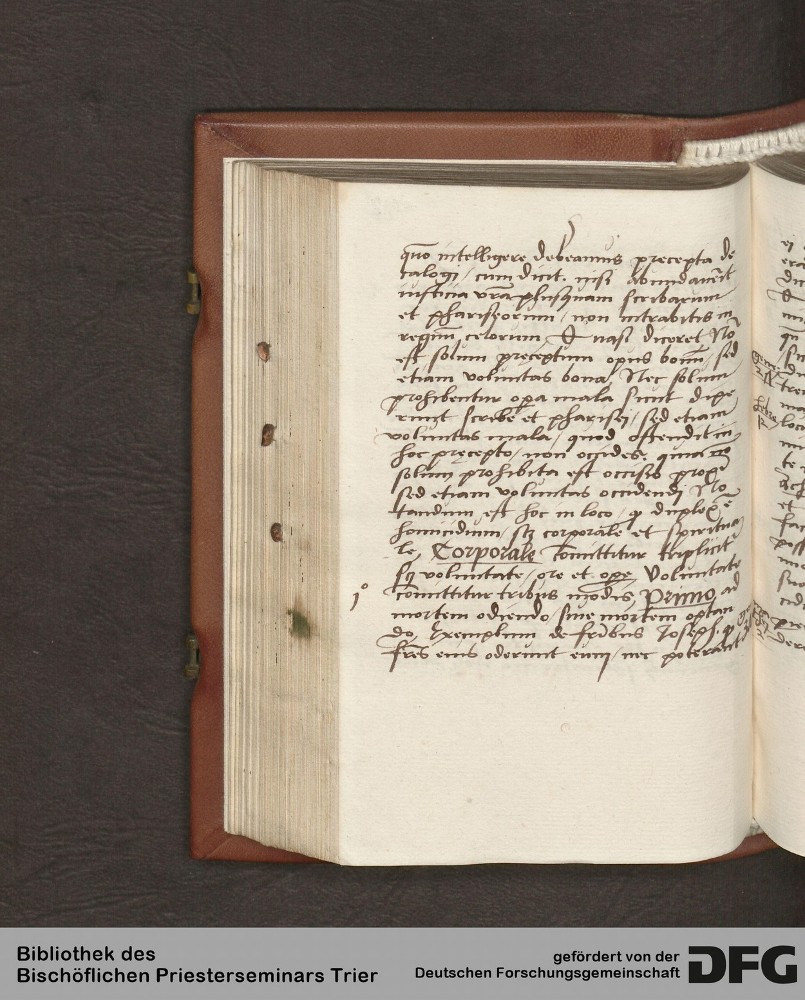 quo intelligere debeamus precepta de
calogi / cum dicit. nisi abundaverit
iustitia vra plusquam scribarum
et phariseorum / non intrabitis in
regnu celorum, q nasi diceret No
est solum preceptum opus bonu / sed
etiam voluntas bona, Nec solum
prohibentur opa mala sicut dixe
runt scribe et pharisei / sed etiam
voluntas mala / quod ostendit in
hoc precepto / non occides. quia no
solum prohibita est occisio proxi
sed etiam voluntas occidendi No
tandum est hoc in loco / q duplex e
homicidium / scz corporale et spiritua
le, Corporale comittitur triplicit
scz voluntate / ore et ope Voluntate
1º comittitur tribus modis Primo ad
mortem odiendo / sive mortem optan
do, Exemplum de fribus Joseph. q
fres eius oderunt eum / nec poterant
Bibliothek des
Bischöflichen Priesterseminars Trier
gefördert von der
Deutschen Forschungsgemeinschaft
DFG